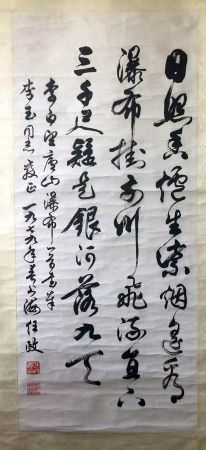 日照香爐生紫烟遙看
瀑布掛前川飛流直下
三千尺疑是銀河落九天
李白望廬山瀑布一首書奉
李玉同志教正 一九七九年春上海任政